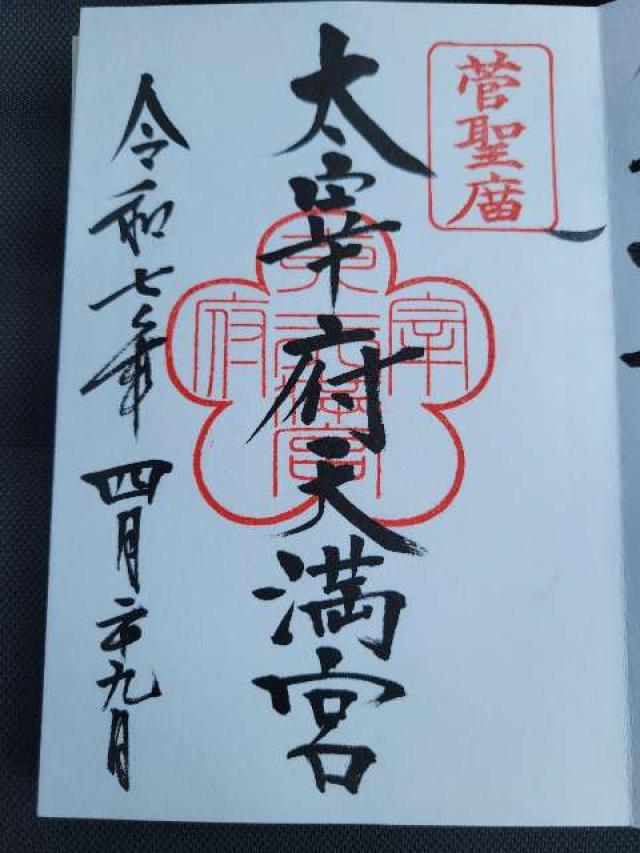 菅聖庿
太宰府天満宮
令和七年四月二十九日